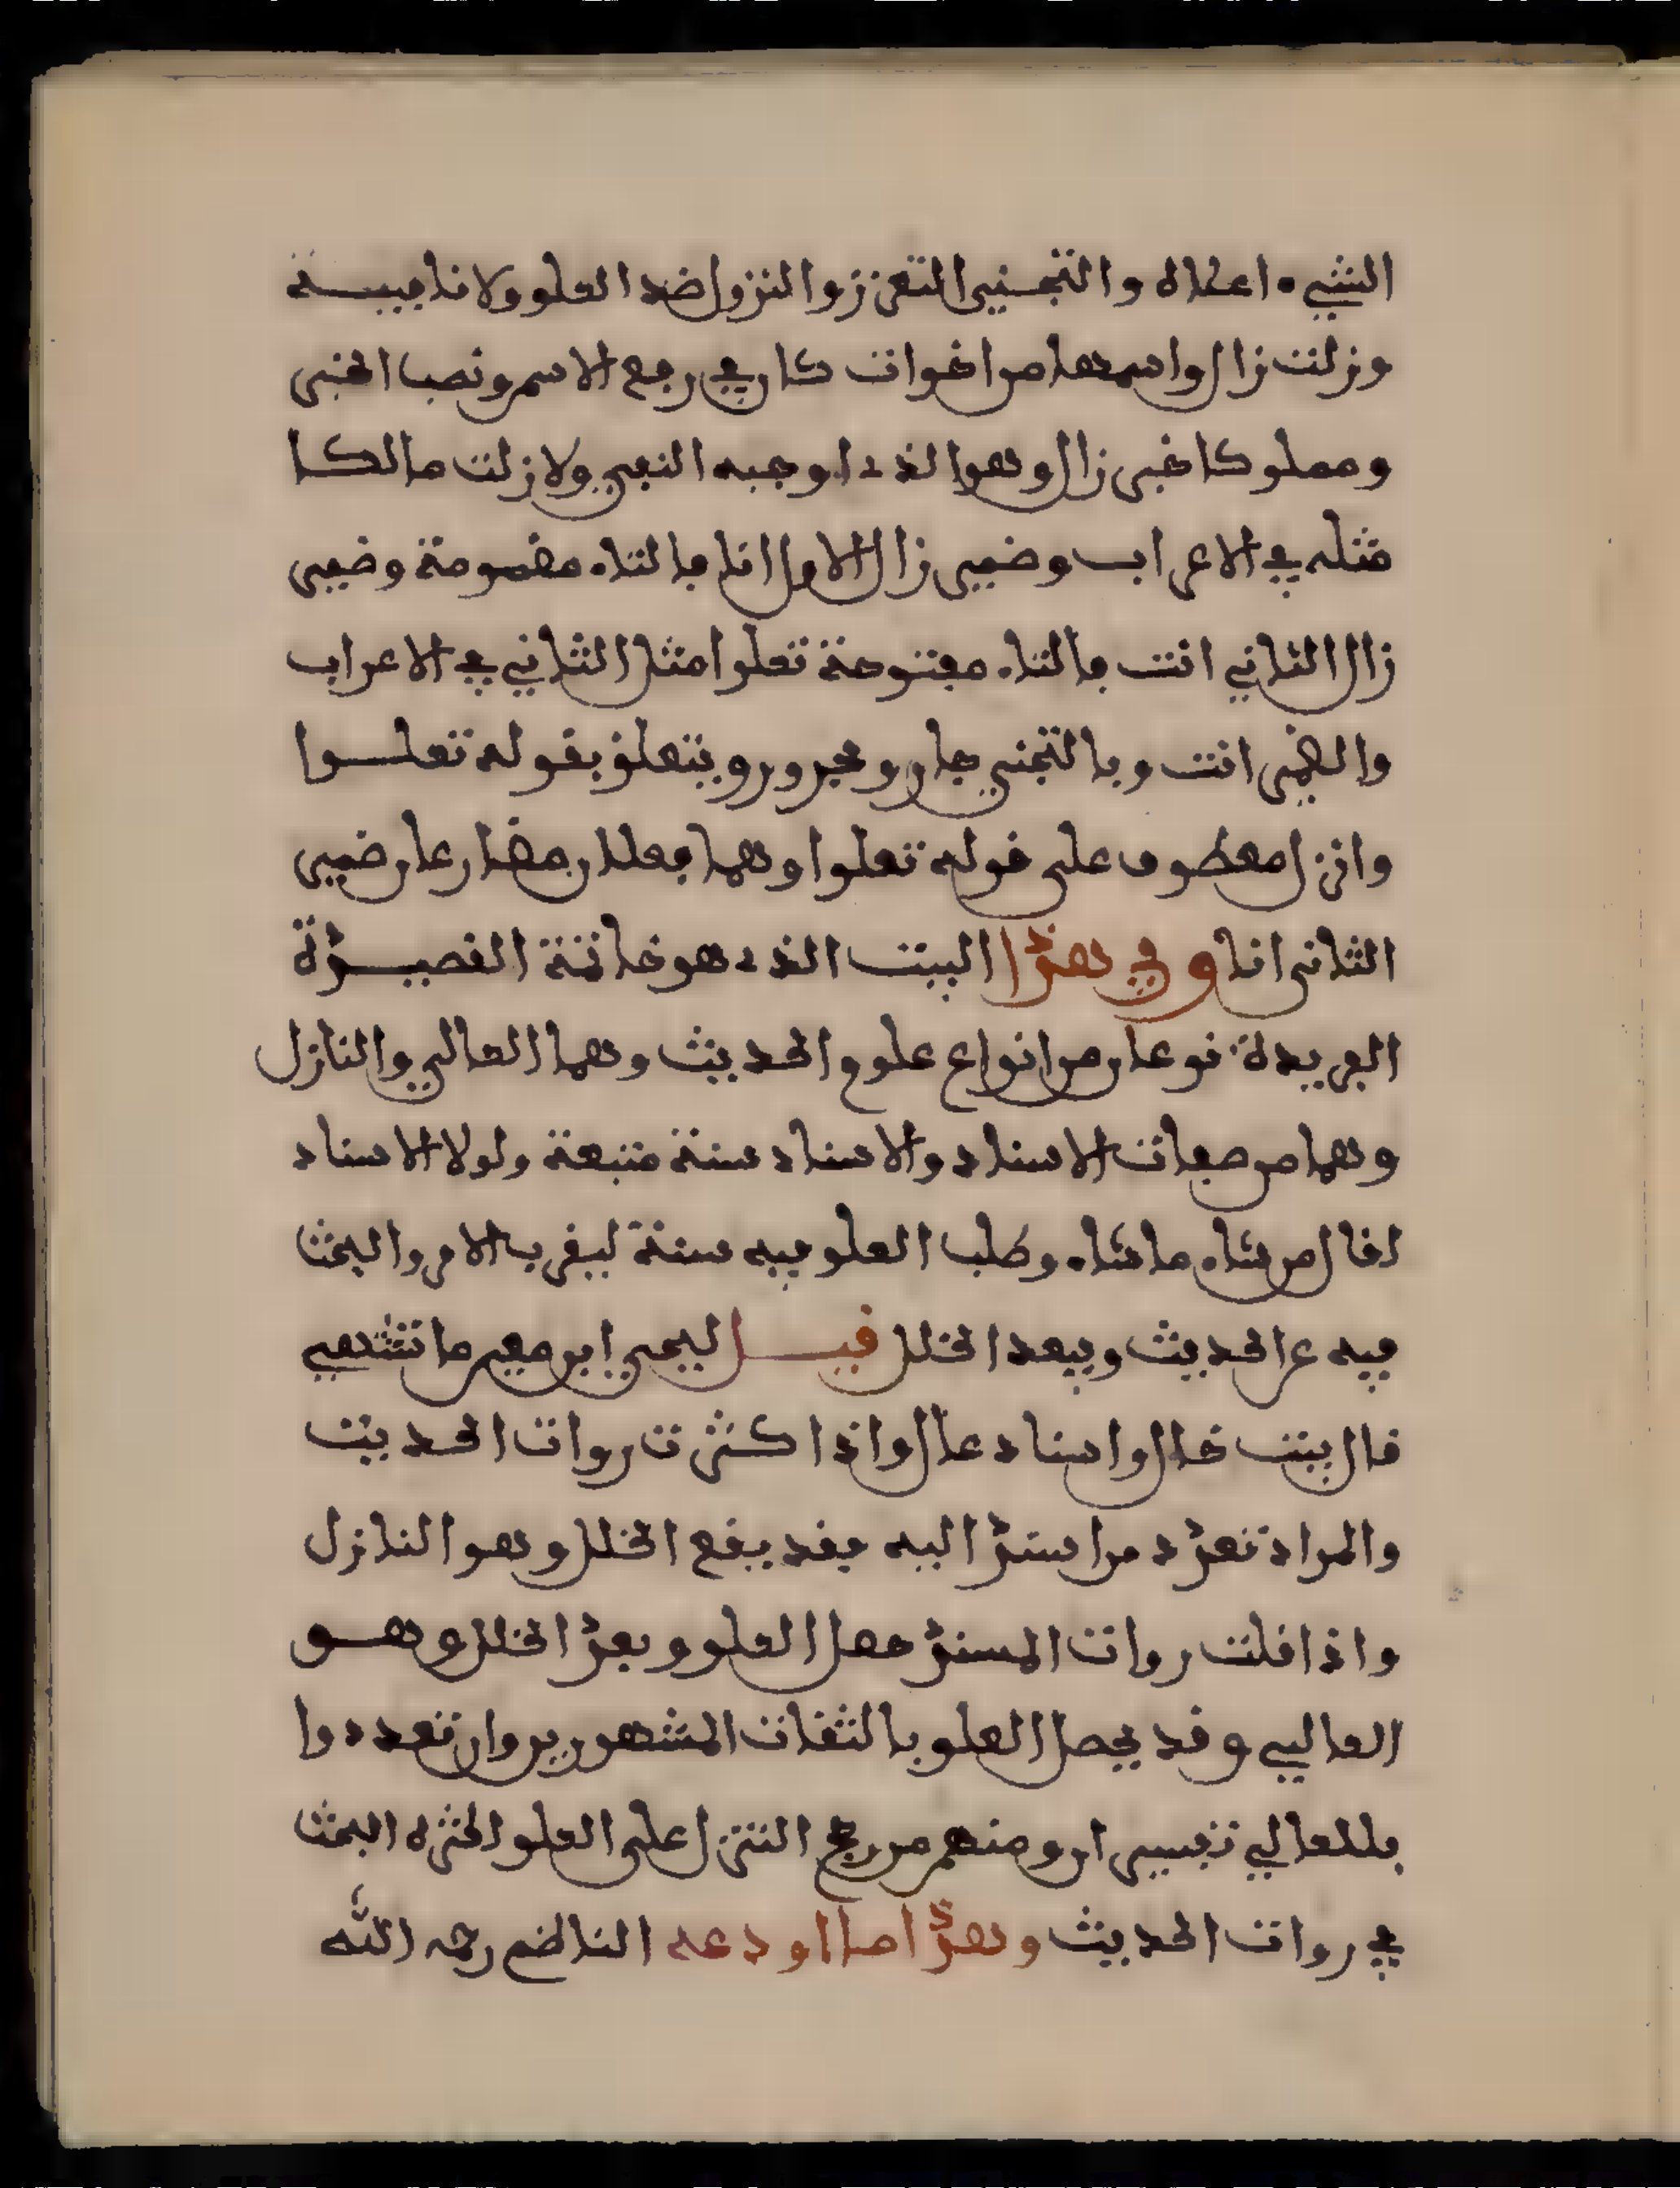 الشيء اعلاه والتجني التعزز والنزول ضد العلو ولا نافيـــة
وزلت زال واسمها من اخوات كان في رفع الاسم ونصب الخبر
ومملوكا خبر زال وهو الذي اوجبه النفي ولا زلت مالكا
مثله في الاعراب وضمير زال الاول انا بالتاء مضمومة وضمير
زال الثاني انت بالتاء مفتوحة تعلوا مثل الثاني في الاعراب
والضمير انت وبالتجني جار ومجرور ويتعلق بقوله تعلـــوا
وانزل معطوف على قوله تعلوا وهما فعلان مضارعان ضمير
الثاني انا وفي هذا البيت الذي هو خاتمة القصيـــدة
الفريدة نوعان من انواع علوم الحديث وهما العالي والنازل
وهما من صفات الاسناد والاسناد سنة متبعة ولولا الاسناد
لقال من شاء ما شاء وطلب العلو فيه سنة ليقرب الامر والبحث
فيه عن الحديث ويبعد الخلل قيـــل ليحيى ابن معين ما تشتهي
قال بيت خال واسناد عال واذا كثرت روات الحديث
والمراد تعدد من استند اليه فقد يقع الخلل وهو النازل
واذا قلت روات المسند حصل العلو وبعد الخلل وهـــو
العالي وقد يحصل العلو بالثقات المشهورين وان تعددوا
فللعالي تفسيران ومنهم من رجح التنزل على العلو لكثرة البحث
في روات الحديث وهذا ما اودعه الناظم رحمه الله